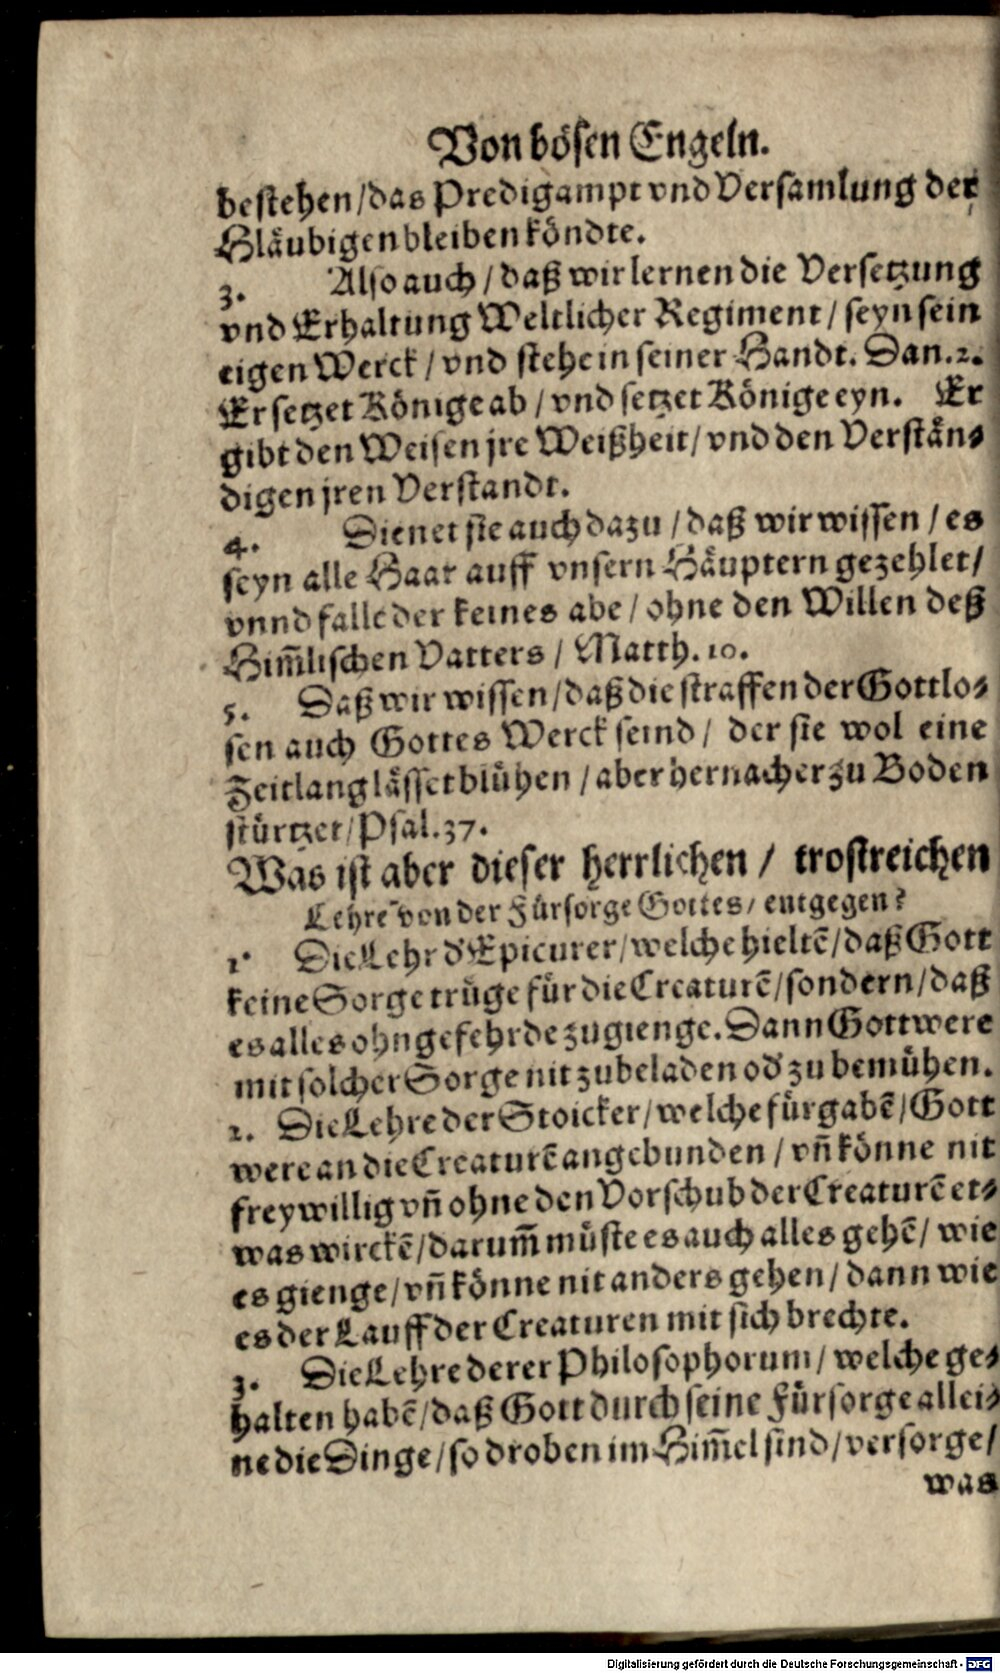 Von bösen Engeln.
bestehen / das Predigampt vnd Versamlung der
Gläubigen bleiben köndte.
3. Also auch / daß wir lernen die Versetzung
vnd Erhaltung Weltlicher Regiment / seyn sein
eigen Werck / vnd stehe in seiner Handt. Dan. 2.
Er setzet Könige ab / vnd setzet Könige eyn. Er
gibt den Weisen jre Weißheit / vnd den Verstän⸗
digen jren Verstandt.
4. Dienet sie auch dazu / daß wir wissen / es
seyn alle Haar auff vnsern Häuptern gezehlet /
vnnd falle der keines abe / ohne den Willen deß
Him̃lischen Vatters / Matth. 10.
5. Daß wir wissen / daß die straffen der Gottlo⸗
sen auch Gottes Werck seind / der sie wol eine
Zeitlang lässet blühen / aber hernacher zu Boden
stürtzet / Psal. 37.
Was ist aber dieser herrlichen / trostreichen
Lehre von der Fürsorge Gottes / entgegen?
1. Die Lehr d' Epicurer / welche hieltẽ / daß Gott
keine Sorge trüge für die Creaturẽ / sondern / daß
es alles ohngefehrde zugienge. Dann Gott were
mit solcher Sorge nit zubeladen od' zu bemühen.
2. Die Lehre der Stoicker / welche fürgabẽ / Gott
were an die Creaturẽ angebunden / vñ könne nit
freywillig vñ ohne den Vorschub der Creaturẽ et⸗
was wirckẽ / darum̃ müste es auch alles gehẽ / wie
es gienge / vñ könne nit anders gehen / dann wie
es der Lauff der Creaturen mit sich brechte.
3. Die Lehre derer Philosophorum / welche ge⸗
halten habẽ / daß Gott durch seine Fürsorge allei⸗
ne die Dinge / so droben im Him̃el sind / versorge /
was
Digitalisierung gefördert durch die Deutsche Forschungsgemeinschaft - DFG